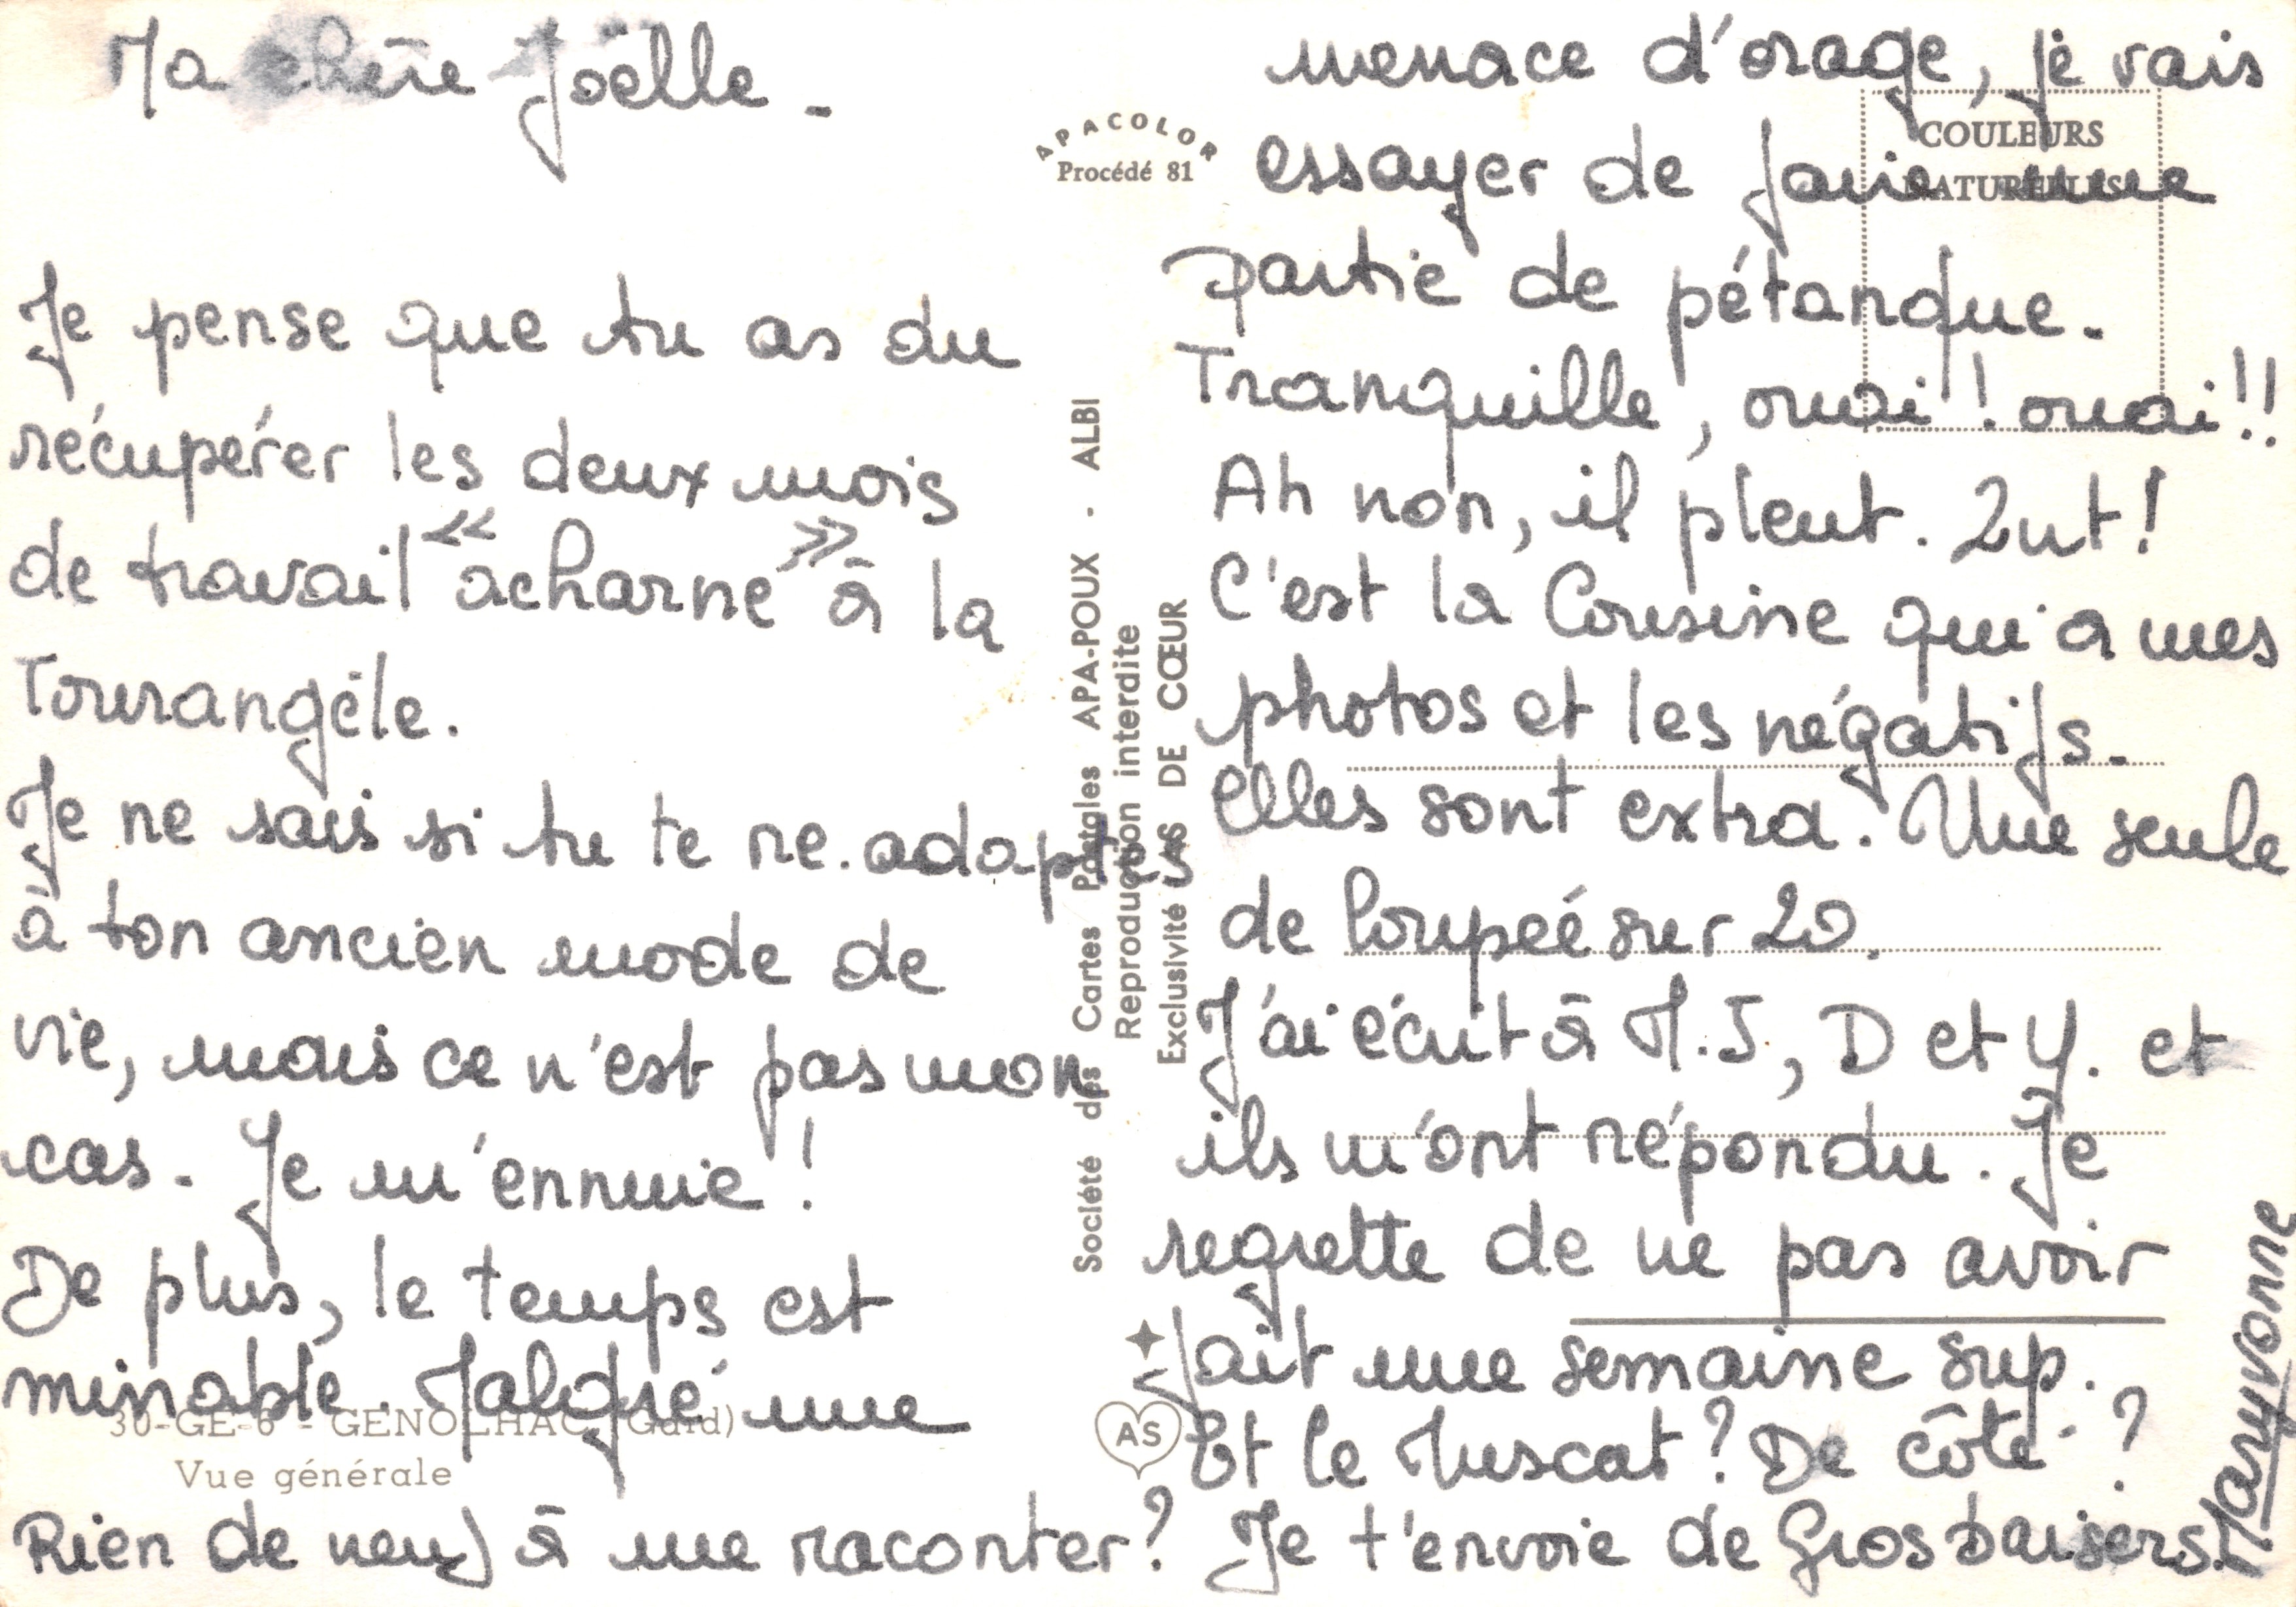 Ma chère Joëlle -
Je pense que tu as du
récupérer les deux mois
de travail « acharné » à la
Tourangèle.
Je ne sais si tu te re.adaptes
à ton ancien mode de
vie, mais ce n'est pas mon
cas. Je m'ennuie !
De plus, le temps est
minable. Malgré une
30-GE-6 - GENOLHAC (Gard)
Vue générale
Rien de neuf à me raconter ?
APACOLOR
Procédé 81
Société des Cartes Postales APA-POUX - ALBI
Reproduction interdite
Exclusivité AS DE CŒUR
AS
COULEURS
NATURELLES
menace d'orage, je vais
essayer de faire une
partie de pétanque.
Tranquille, ouai ! ouai !!
Ah non, il pleut. Zut !
C'est la Cousine qui a mes
photos et les négatifs.
Elles sont extra. Une seule
de loupeé sur 20.
J'ai écrit à M.J., D et Y. et
ils m'ont répondu. Je
regrette de ne pas avoir
fait une semaine sup.
Et le Muscat ? De côté ?
Je t'envoie de Gros baisers.
Maryvonne